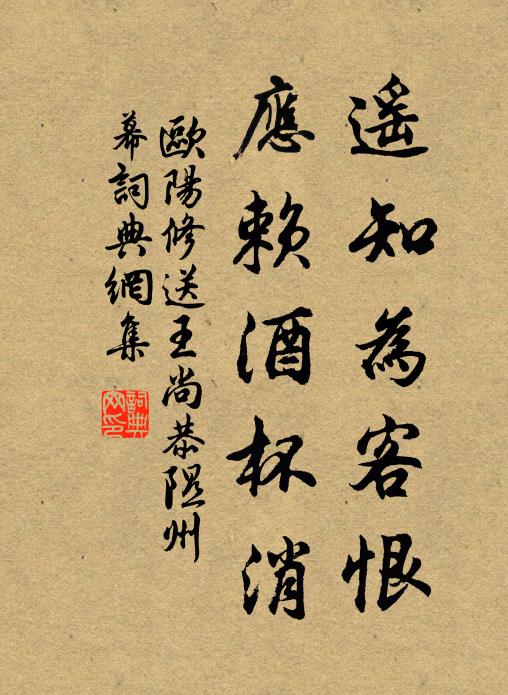 遥知為客恨
應賴酒杯消
歐陽修送王尚恭隰州
幕詞典網集
詞典
网印